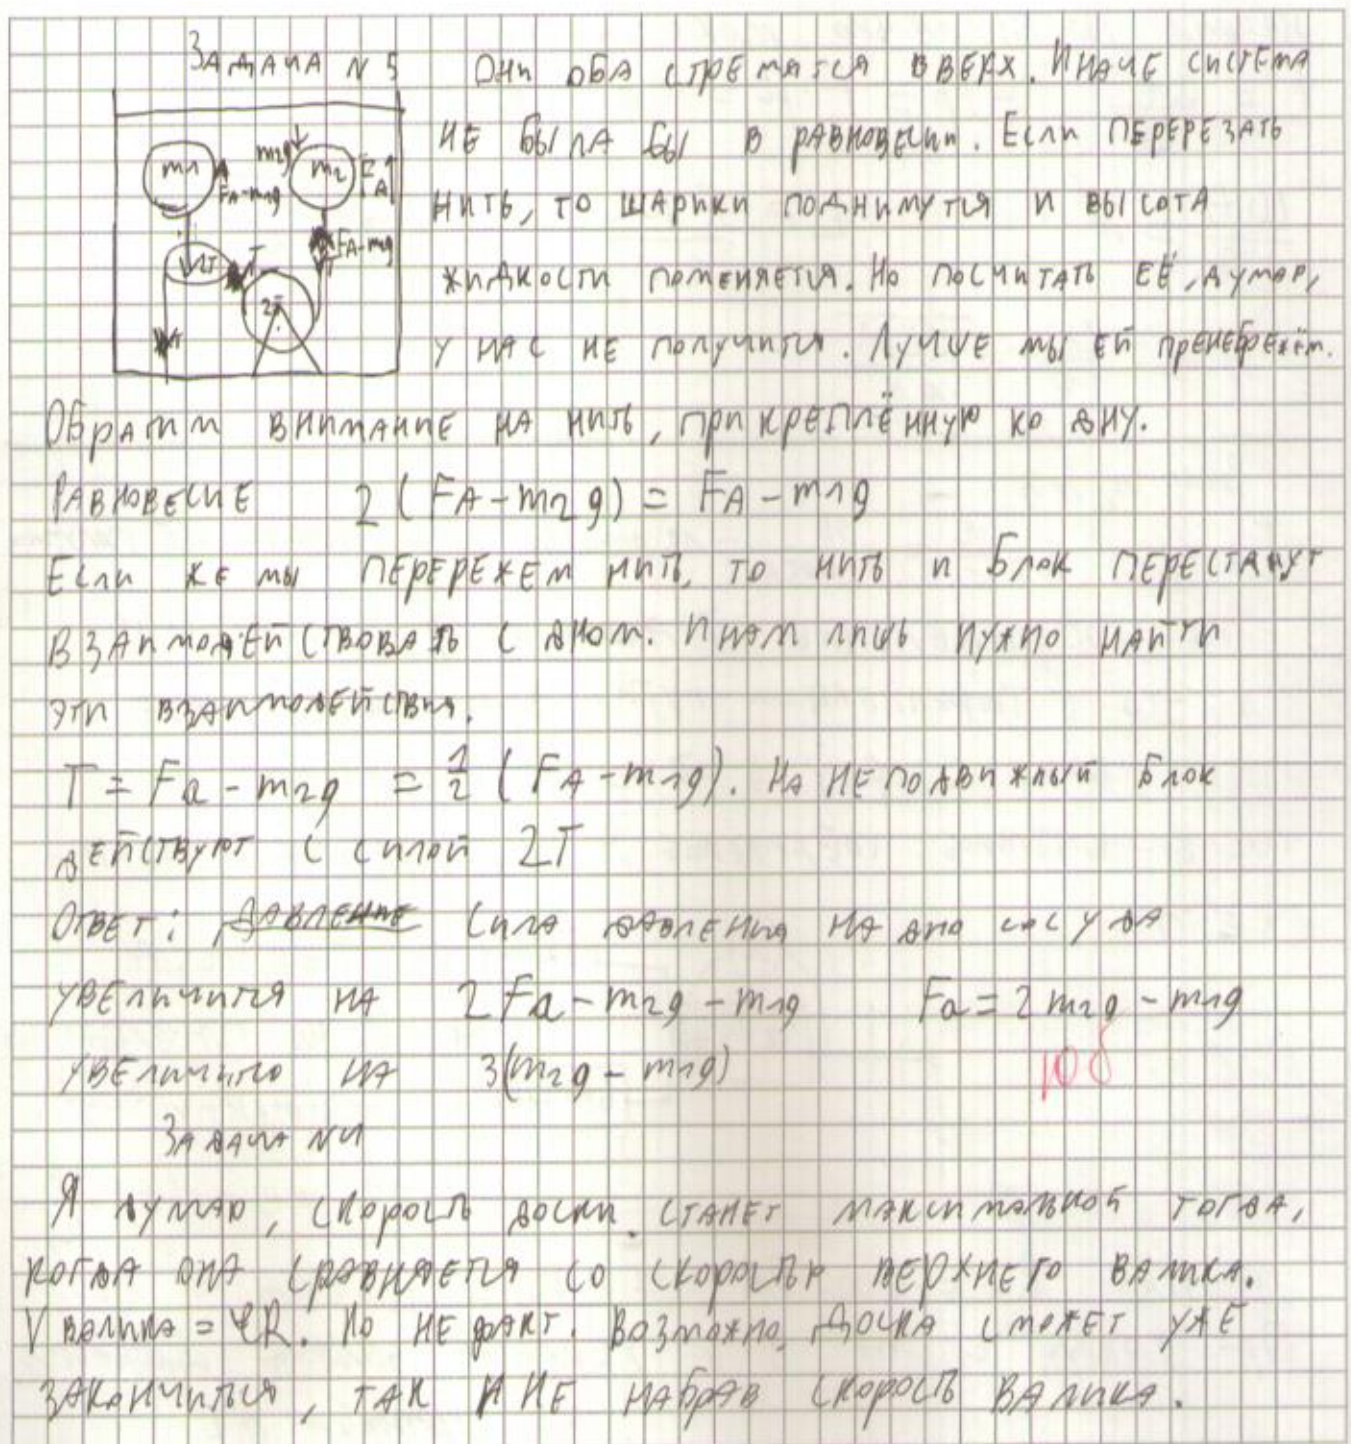 Задача N 5
Они оба стремятся вверх. Иначе система
не была бы в равновесии. Если перерезать
нить, то шарики поднимутся и высота
жидкости поменяется. Но посчитать её, думаю,
у нас не получится. Лучше мы ей пренебрежём.
m1
FA-m1g
m2g
m2
FA
FA-m2g
2T
T
2T
Обратим внимание на нить, прикреплённую ко дну.
Равновесие 2(FA-m2g) = FA-m1g
Если же мы перережем нить, то нить и блок перестанут
взаимодействовать с дном. И нам лишь нужно найти
эти взаимодействия.
T = Fa - m2g = 1/2 (FA-m1g). На неподвижный блок
действуют с силой 2T
Ответ: Давление Сила давления на дно сосуда
увеличится на 2Fa - m2g - m1g Fa = 2m2g - m1g
увеличится на 3(m2g - m1g)
10б
Задача N4
Я думаю, скорость доски станет максимальной тогда,
когда она сравняется со скоростью верхнего валика.
V валика = φR. Но не факт. Возможно, доска сможет уже
закончиться, так и не набрав скорость валика.